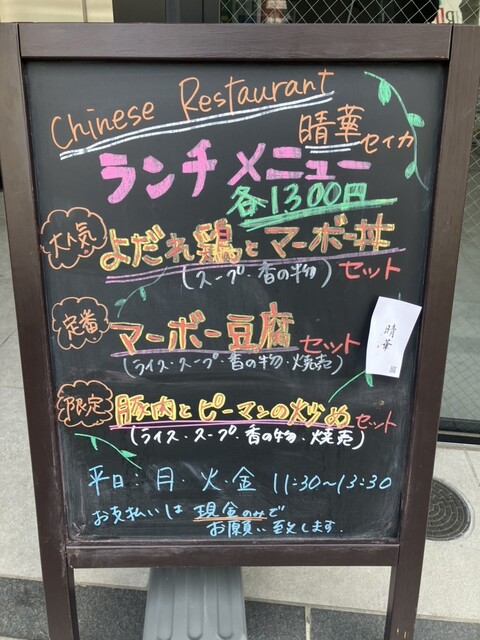 Chinese Restaurant
晴華 セイカ
ランチメニュー
各1300円
大人気 よだれ鶏とマーボー丼
(スープ・香の物) セット
定番 マーボー豆腐 セット
(ライス・スープ・香の物・焼売)
晴華
限定 豚肉とピーマンの炒め セット
(ライス・スープ・香の物・焼売)
平日:月・火・金 11:30~13:30
お支払いは 現金のみで
お願い致します.